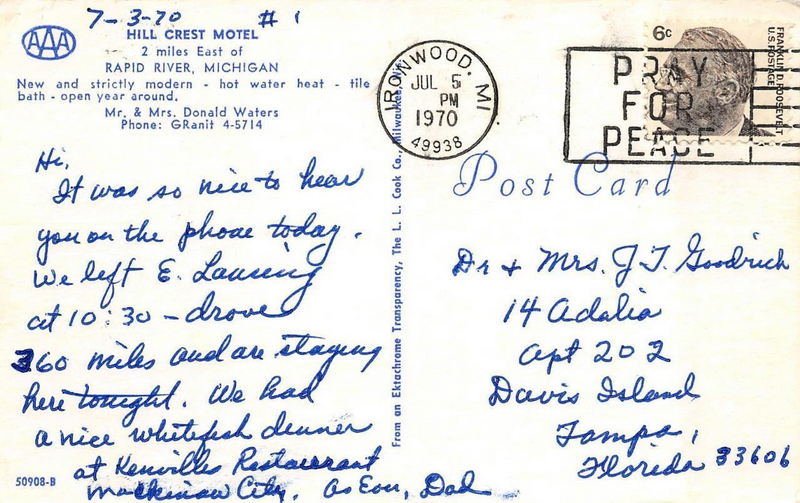 7-3-70 #1
AAA
HILL CREST MOTEL
2 miles East of
RAPID RIVER, MICHIGAN
New and strictly modern - hot water heat - tile
bath - open year around.
Mr. & Mrs. Donald Waters
Phone: GRanit 4-5714
Hi,
It was so nice to hear
you on the phone today.
We left E. Lansing
at 10:30 - drove
360 miles and are staying
here tonight. We had
a nice whitefish dinner
at Kenvilles Restaurant
Mackinaw City. As Ever, Dad
50908-B
From an Ektachrome Transparency, The L. L. Cook Co., Milwaukee, Wis.
IRONWOOD, MI
JUL 5
PM
1970
49938
PRAY
FOR
PEACE
6c
FRANKLIN D. ROOSEVELT
U.S. POSTAGE
Post Card
Dr & Mrs. J T. Goodrich
14 Adalia
Apt 202
Davis Island
Tampa,
Florida 33606